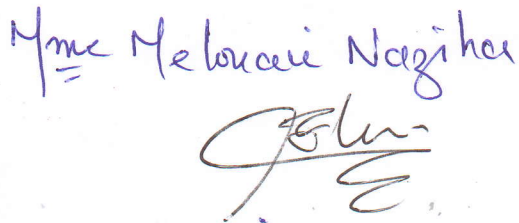 Mme Melouaie Naziha